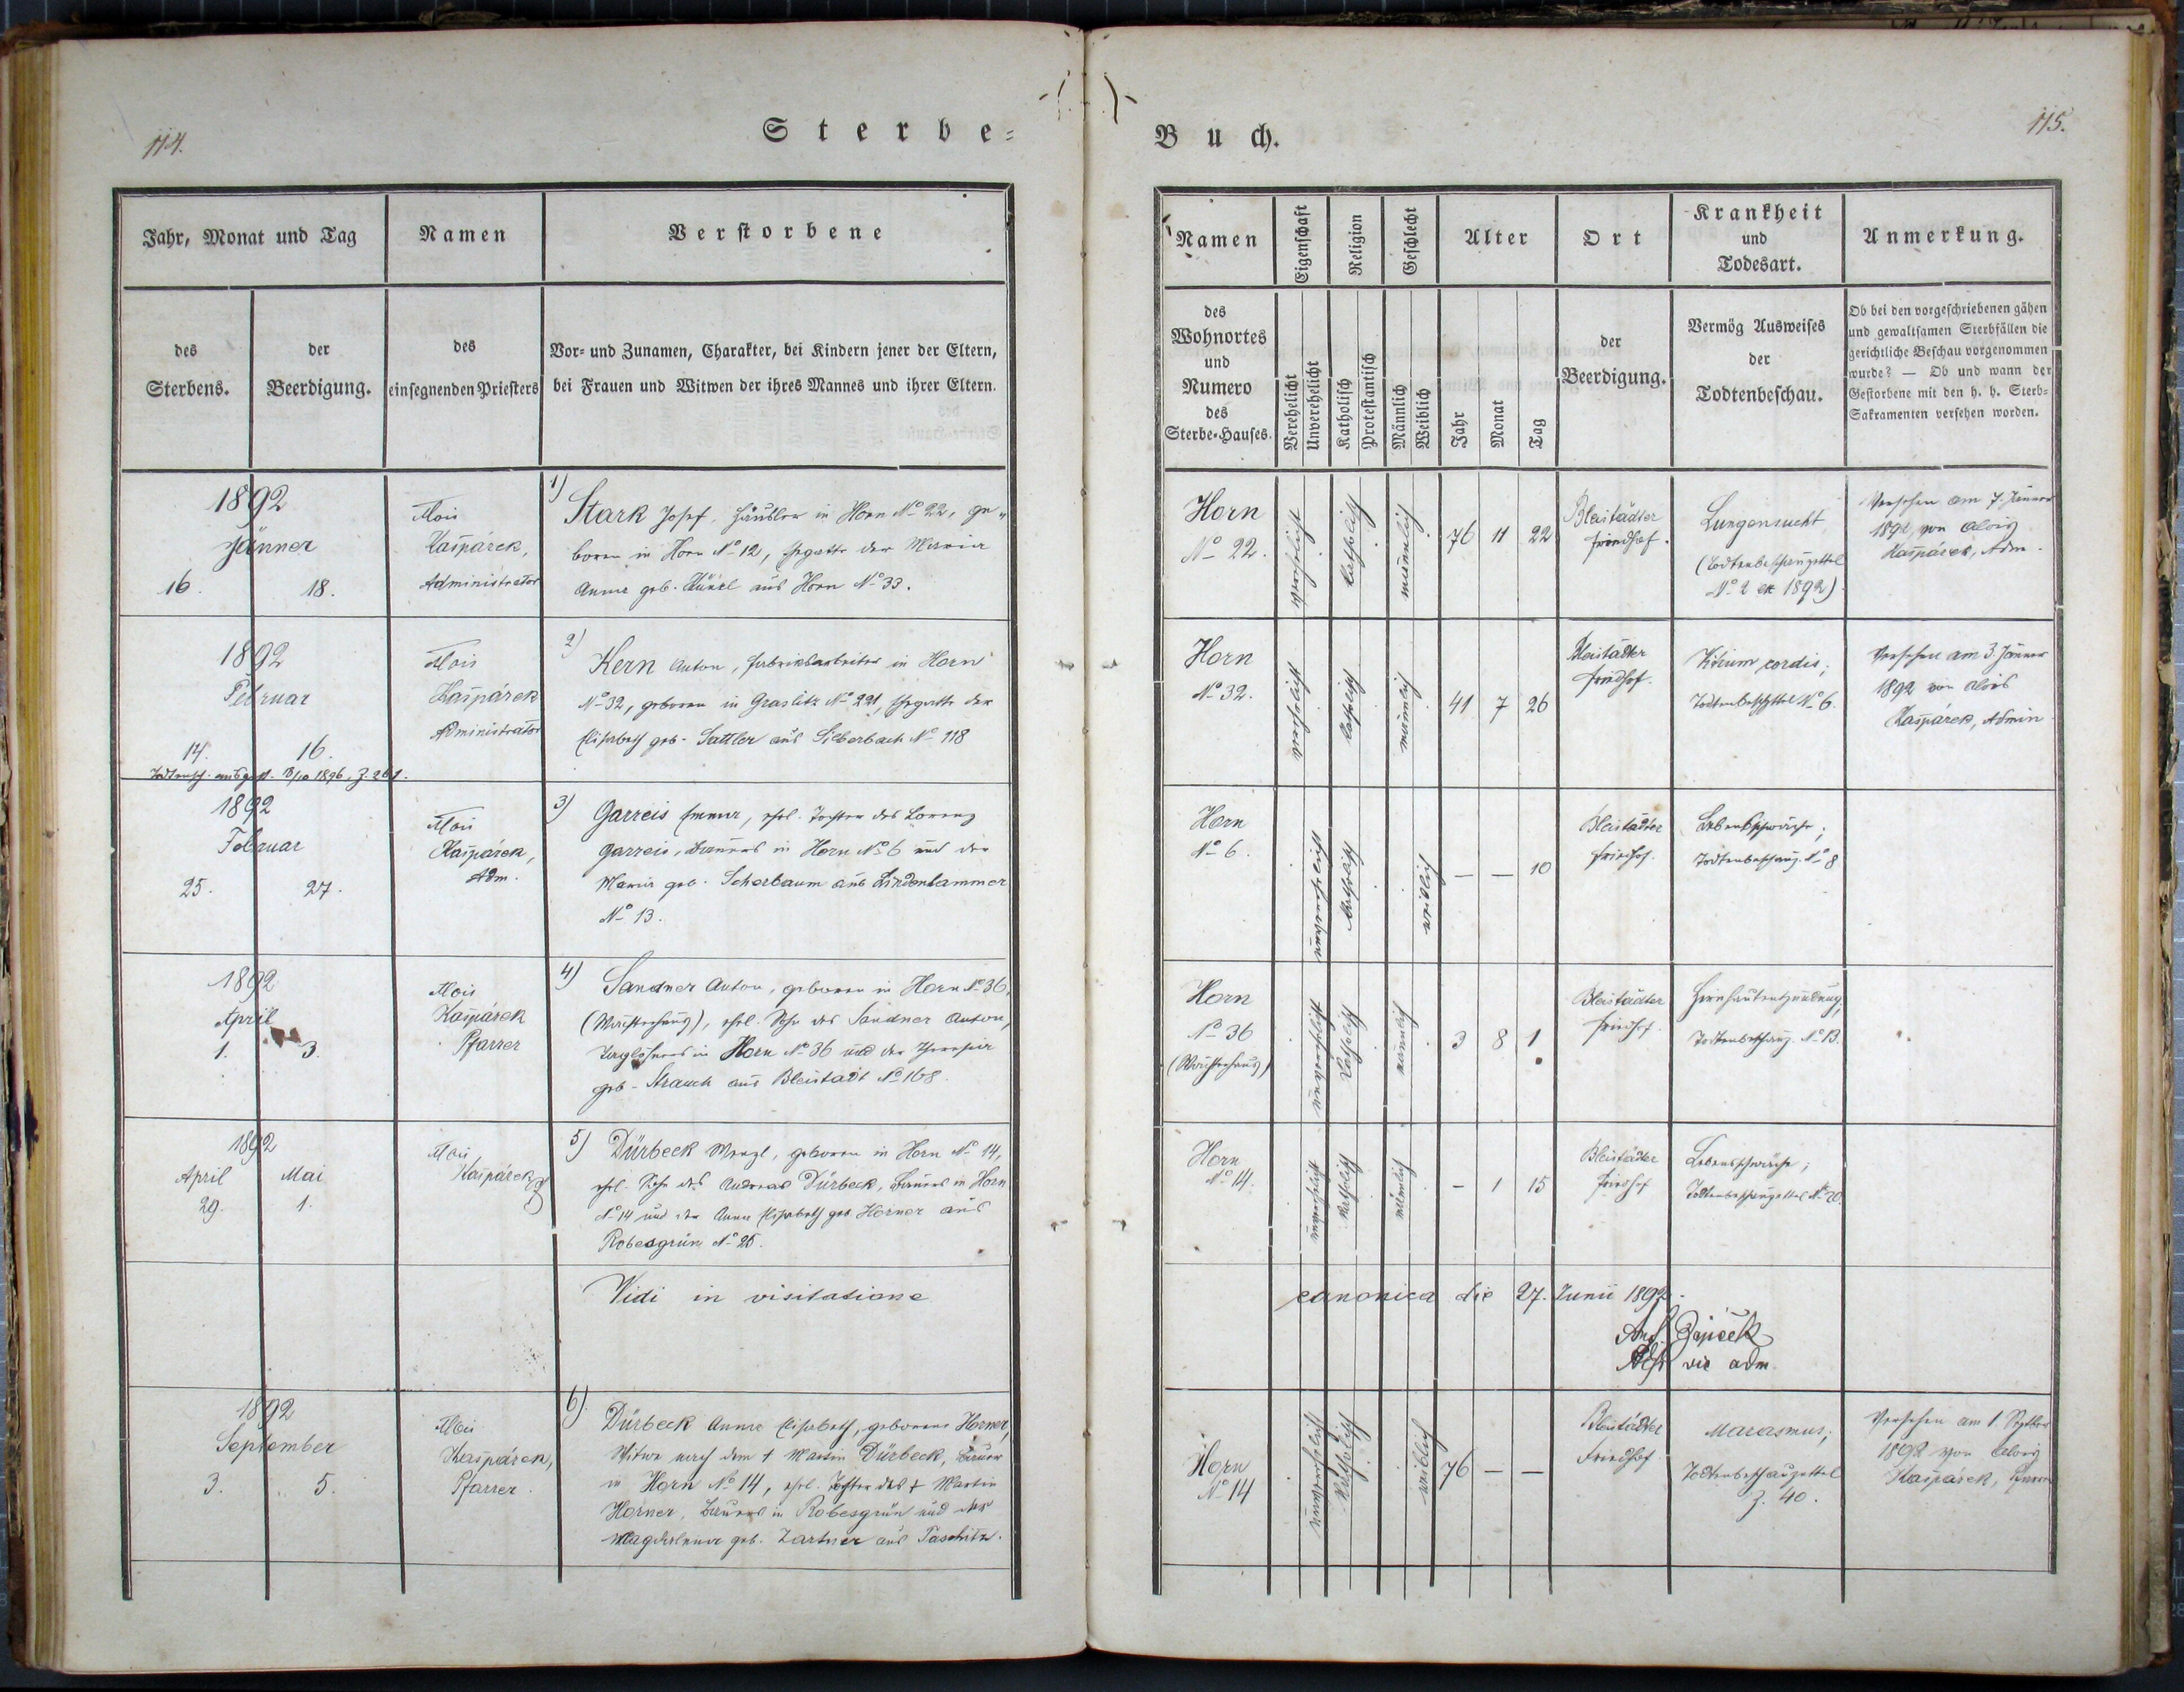 114.
Sterbe=
Jahr, Monat und Tag
Namen
Verstorbene
des
Sterbens.
der
Beerdigung.
des
einsegnenden Priesters
Vor= und Zunamen, Charakter, bei Kindern jener der Eltern,
bei Frauen und Witwen der ihres Mannes und ihrer Eltern.
1892
Jänner
16. 18.
Alois
Kašpárek,
Administrator
1) Stark Josef, Häusler in Horn No 22, ge„
boren in Horn No 12, Ehegatte der Maria
Anna geb. aus Horn No 33.
1892
Februar
14. 16.
Todtensch. ausgest. 1896, Z. 261.
Alois
Kašpárek
Administrator
2) Kern Anton, Fabriksarbeiter in Horn
No 32, geboren in Graslitz No 221, Ehegatte der
Elisabeth geb. Sattler aus Silberbach No 118
1892
Februar
25. 27.
Alois
Kašpárek,
Adm.
3) Garreis Emma, ehel. Tochter des Lorenz
Garreis, Bauers in Horn No 6 und der
Maria geb. Scherbaum aus Lindenhammer
No 13.
1892
April
1. 3.
Alois
Kašpárek
Pfarrer
4) Sandner Anton, geboren in Horn No 36,
ehel. Sohn des Sandner Anton,
Taglöhners in Horn No 36 und der Theresia
geb. Strauch aus Bleistadt No 168.
1892
April Mai
29. 1.
Alois
Kašpárek
5) Dürbeck Wenzl, geboren in Horn No 14,
ehel. Sohn des Andreas Dürbeck, Bauers in Horn
No 14 und der Anna Elisabeth geb. Horner aus
Robesgrün No 25.
Vidi in visitatione
1892
September
3. 5.
Alois
Kašpárek,
Pfarrer.
6) Dürbeck Anna Elisabeth, geborene Horner,
Witwe nach dem † Martin Dürbeck, Bauer
in Horn No 14, ehel. Tochter des † Martin
Horner, Bauers in Robesgrün und der
Magdalena geb. Zartner aus Taschitz.
115.
Buch.
Namen
Eigenschaft
Religion
Geschlecht
Alter
Ort
Krankheit
und
Todesart.
Anmerkung.
des
Wohnortes
und
Numero
des
Sterbe=Hauses.
Verehelicht
Unverehelicht
Katholisch
Protestantisch
Männlich
Weiblich
Jahr
Monat
Tag
der
Beerdigung.
Vermög Ausweises
der
Todtenbeschau.
Ob bei den vorgeschriebenen gähen
und gewaltsamen Sterbfällen die
gerichtliche Beschau vorgenommen
wurde? — Ob und wann der
Gestorbene mit den h. h. Sterb=
Sakramenten versehen worden.
Horn
No 22.
verehelicht
katholisch
männlich
76 11 22
Bleistädter
Friedhof.
Lungensucht
(Todtenbeschauzettel
No 2 ex 1892)
Versehen am 7. Jänner
1892, von Alois
Kašpárek, Adm.
Horn
No 32.
verehelicht
katholisch
männlich
41 7 26
Bleistädter
Friedhof.
Vitium cordis;
No 6.
Versehen am 3. Jänner
1892 von Alois
Kašpárek, Admin
Horn
No 6.
unverehelicht
katholisch
weiblich
— — 10
Bleistädter
Friedhof.
Lebensschwäche;
Todtenbeschauz. No 8
Horn
No 36
unverehelicht
katholisch
männlich
3 8 1
Bleistädter
Friedhof.
Hirnhautentzündung,
Todtenbeschauz. No 13.
Horn
No 14.
unverehelicht
katholisch
männlich
— 1 15
Bleistädter
Friedhof
Lebensschwäche;
Todtenbeschauzettel No 20.
canonica die 27. Junii 1892.
vic adm.
Horn
No 14
unverehelicht
katholisch
weiblich
76 — —
Bleistädter
Friedhof
Marasmus;
Todtenbeschauzettel
Z. 40.
Versehen am 1. Septber
1892 von Alois
Kašpárek, Pfarrer